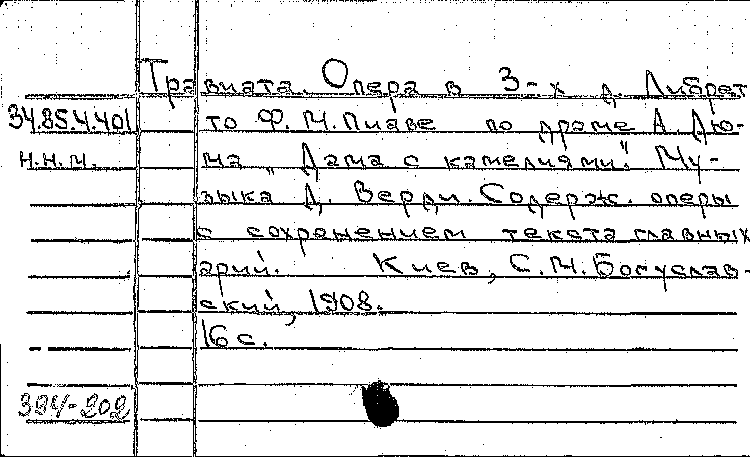 Травиата. Опера в 3-х д. Либрет
34.85.4.401 то Ф. М. Пиаве по драме А. Дю-
н.н.м. ма „Дама с камелиями". Му-
зыка Д. Верди. Содерж. оперы
с сохранением текста главных
арий. Киев, С. М. Богуслав-
ский, 1908.
16 с.
324-202